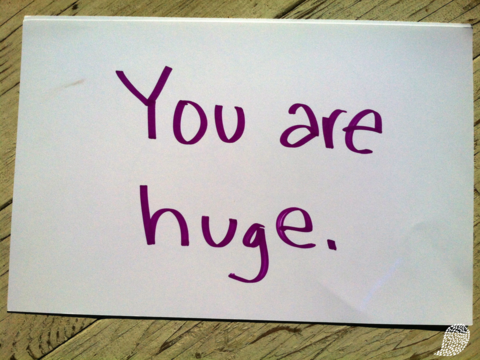 You are
huge.